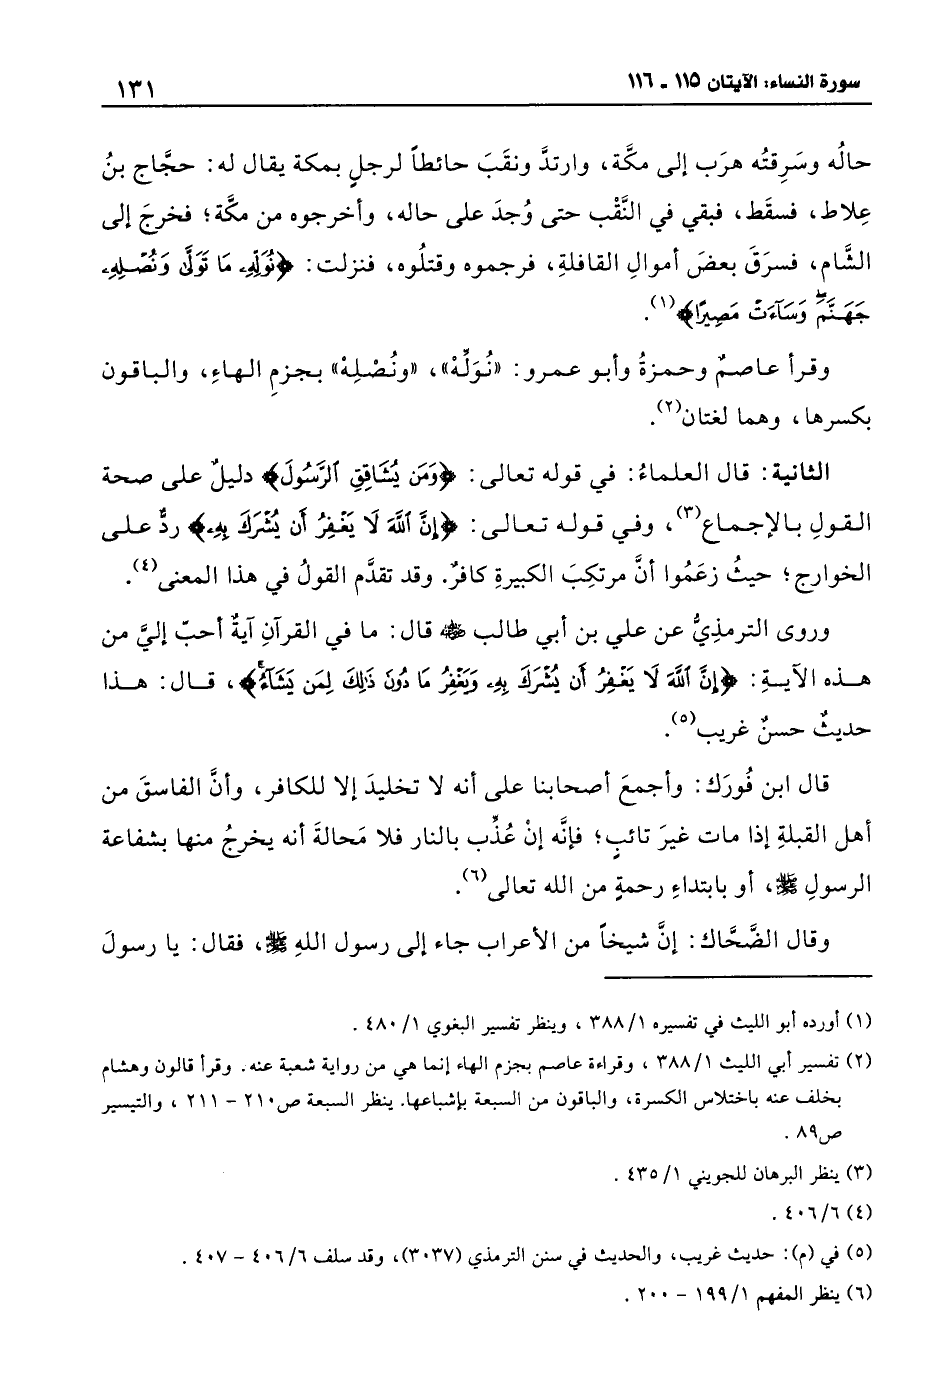 سورة النساء: الآيتان ١١٥ - ١١٦
١٣١
حالُه وسَرِقتُه هرَب إلى مكَّة، وارتدَّ ونقَبَ حائطاً لرجلٍ بمكة يقال له: حجَّاج بنُ
عِلاط، فسقَط، فبقي في النَّقْب حتى وُجدَ على حاله، وأخرجوه من مكَّة؛ فخرجَ إلى
الشَّام، فسرَقَ بعضَ أموالِ القافلةِ، فرجموه وقتلُوه، فنزلت: ﴿نُوَلِّهِۦ مَا تَوَلَّىٰ وَنُصْلِهِۦ
جَهَنَّمَۖ وَسَآءَتْ مَصِيرًا﴾(١).
وقرأ عاصمٌ وحمزةُ وأبو عمرو: «نُوَلِّهْ»، «ونُصْلِهْ» بجزمِ الهاءِ، والباقون
بكسرها، وهما لغتان(٢).
الثانية: قال العلماءُ: في قوله تعالى: ﴿وَمَن يُشَاقِقِ ٱلرَّسُولَ﴾ دليلٌ على صحة
القولِ بالإجماع(٣)، وفي قوله تعالى: ﴿إِنَّ ٱللَّهَ لَا يَغْفِرُ أَن يُشْرَكَ بِهِۦ﴾ ردٌّ على
الخوارج؛ حيثُ زعَمُوا أنَّ مرتكِبَ الكبيرةِ كافرٌ. وقد تقدَّم القولُ في هذا المعنى(٤).
وروى الترمذيُّ عن علي بن أبي طالب ﷺ قال: ما في القرآنِ آيةٌ أحبّ إليَّ من
هذه الآيةِ: ﴿إِنَّ ٱللَّهَ لَا يَغْفِرُ أَن يُشْرَكَ بِهِۦ وَيَغْفِرُ مَا دُونَ ذَٰلِكَ لِمَن يَشَآءُۚ﴾، قال: هذا
حديثٌ حسنٌ غريب(٥).
قال ابن فُورَك: وأجمعَ أصحابنا على أنه لا تخليدَ إلا للكافر، وأنَّ الفاسقَ من
أهل القبلةِ إذا مات غيرَ تائبٍ؛ فإنَّه إنْ عُذِّب بالنار فلا مَحالةَ أنه يخرجُ منها بشفاعة
الرسولِ ﷺ، أو بابتداءِ رحمةٍ من الله تعالى(٦).
وقال الضَّحَّاك: إنَّ شيخاً من الأعراب جاء إلى رسول اللهِ ﷺ، فقال: يا رسولَ
(١) أورده أبو الليث في تفسيره ١/ ٣٨٨ ، وينظر تفسير البغوي ١/ ٤٨٠ .
(٢) تفسير أبي الليث ١/ ٣٨٨ ، وقراءة عاصم بجزم الهاء إنما هي من رواية شعبة عنه. وقرأ قالون وهشام
بخلف عنه باختلاس الكسرة، والباقون من السبعة بإشباعها. ينظر السبعة ص٢١٠ - ٢١١ ، والتيسير
ص٨٩ .
(٣) ينظر البرهان للجويني ١/ ٤٣٥ .
(٤) ٦/ ٤٠٦ .
(٥) في (م): حديث غريب، والحديث في سنن الترمذي (٣٠٣٧)، وقد سلف ٦/ ٤٠٦ - ٤٠٧ .
(٦) ينظر المفهم ١/ ١٩٩ - ٢٠٠ .